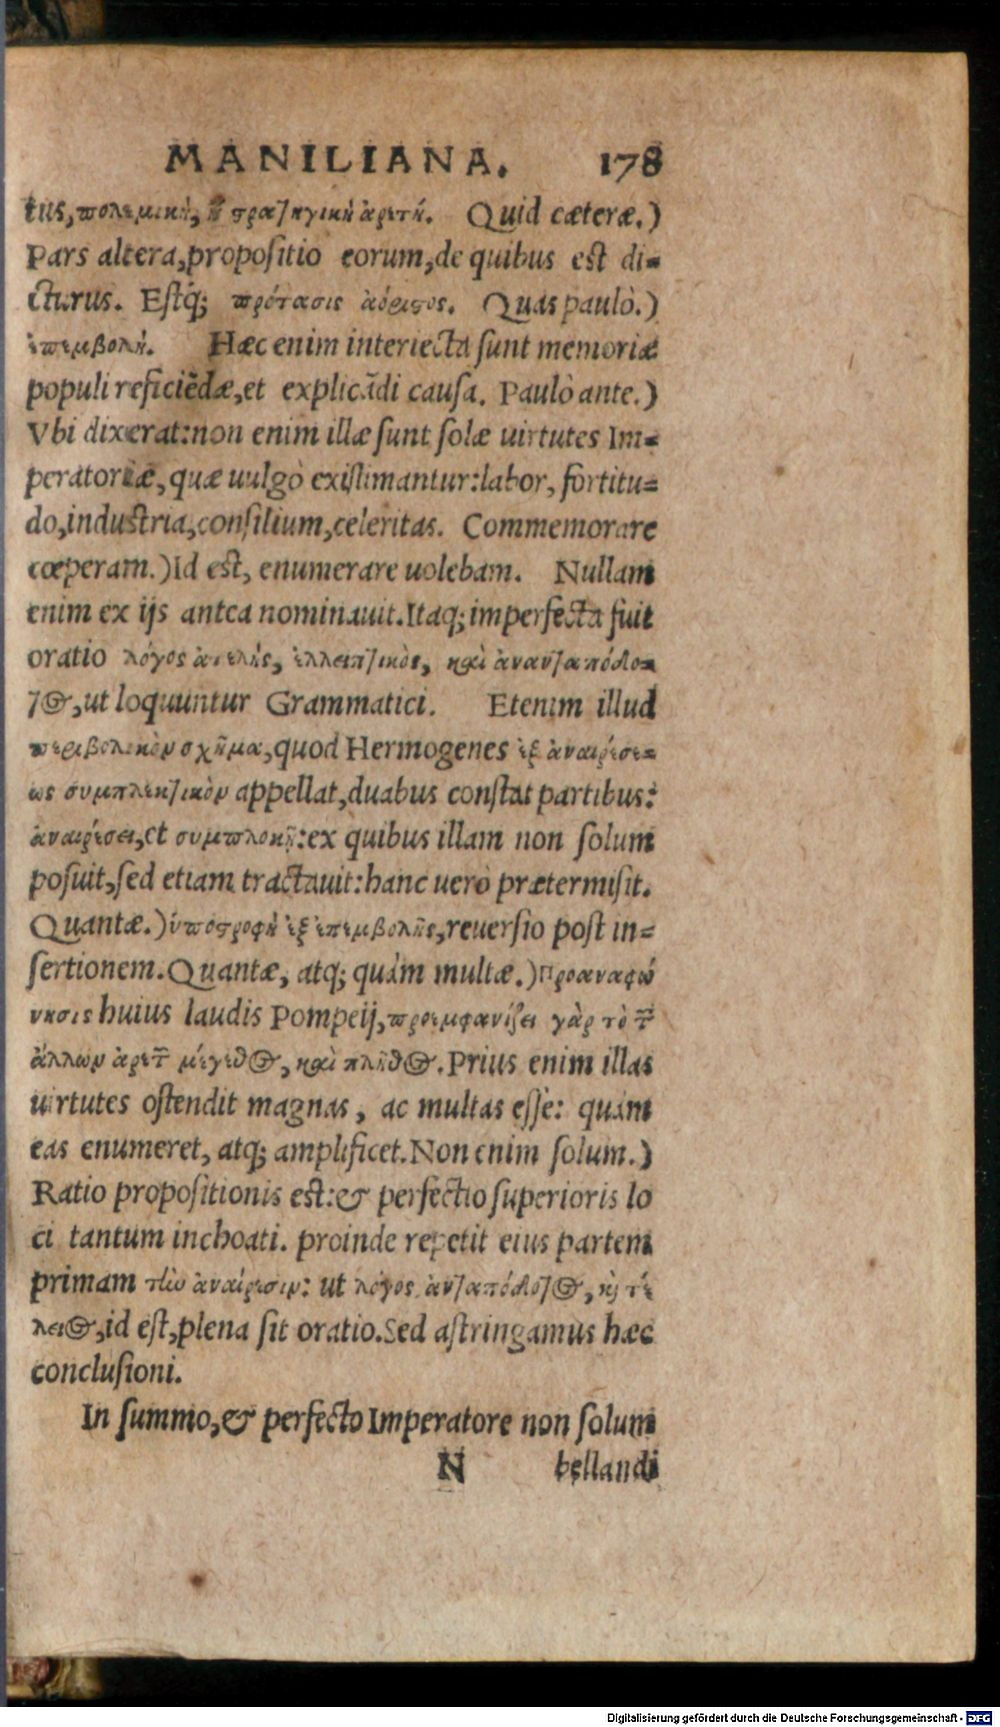 MANILIANA. 178
tus, πολεμικὴ, ἢ στρατηγικὴ ἀρετή. Quid cæteræ.)
Pars altera, propositio eorum, de quibus est di-
cturus. Estq; πρότασις ἀόριστος. Quas paulò.)
ἐπεμβολή. Hæc enim interiecta sunt memoriæ
populi reficiẽdæ, et explicãdi causa. Paulò ante.)
Vbi dixerat: non enim illæ sunt solæ uirtutes Im-
peratoriæ, quæ uulgò existimantur: labor, fortitu-
do, industria, consilium, celeritas. Commemorare
cœperam.) Id est, enumerare uolebam. Nullam
enim ex ijs antea nominauit. Itaq; imperfecta fuit
oratio λόγος ἀτελὴς, ἐλλειπτικὸς, καὶ ἀνανταπόδο-
τος, ut loquuntur Grammatici. Etenim illud
περιβολικὸν σχῆμα, quod Hermogenes ἐξ ἀναιρέσε-
ως συμπλεκτικὸν appellat, duabus constat partibus:
ἀναιρέσει, et συμπλοκῇ: ex quibus illam non solum
posuit, sed etiam tractauit: hanc uerò prætermisit.
Quantæ.) ὑποστροφὴ ἐξ ἐπεμβολῆς, reuersio post in-
sertionem. Quantæ, atq; quàm multæ.) Προαναφώ
νησις huius laudis Pompeij, προεμφανίζει γὰρ τὸ τῶν
ἄλλων ἀρετῶν μέγεθος, καὶ πλῆθος. Prius enim illas
uirtutes ostendit magnas, ac multas esse: quàm
eas enumeret, atq; amplificet. Non enim solum.)
Ratio propositionis est: & perfectio superioris lo
ci tantum inchoati. proinde repetit eius partem
primam τὴν ἀναίρεσιν: ut λόγος ἀνταπόδοτος, κὶ τέ
λειος, id est, plena sit oratio. Sed astringamus hæc
conclusioni.
In summo, & perfecto Imperatore non solum
N bellandi
Digitalisierung gefördert durch die Deutsche Forschungsgemeinschaft - DFG